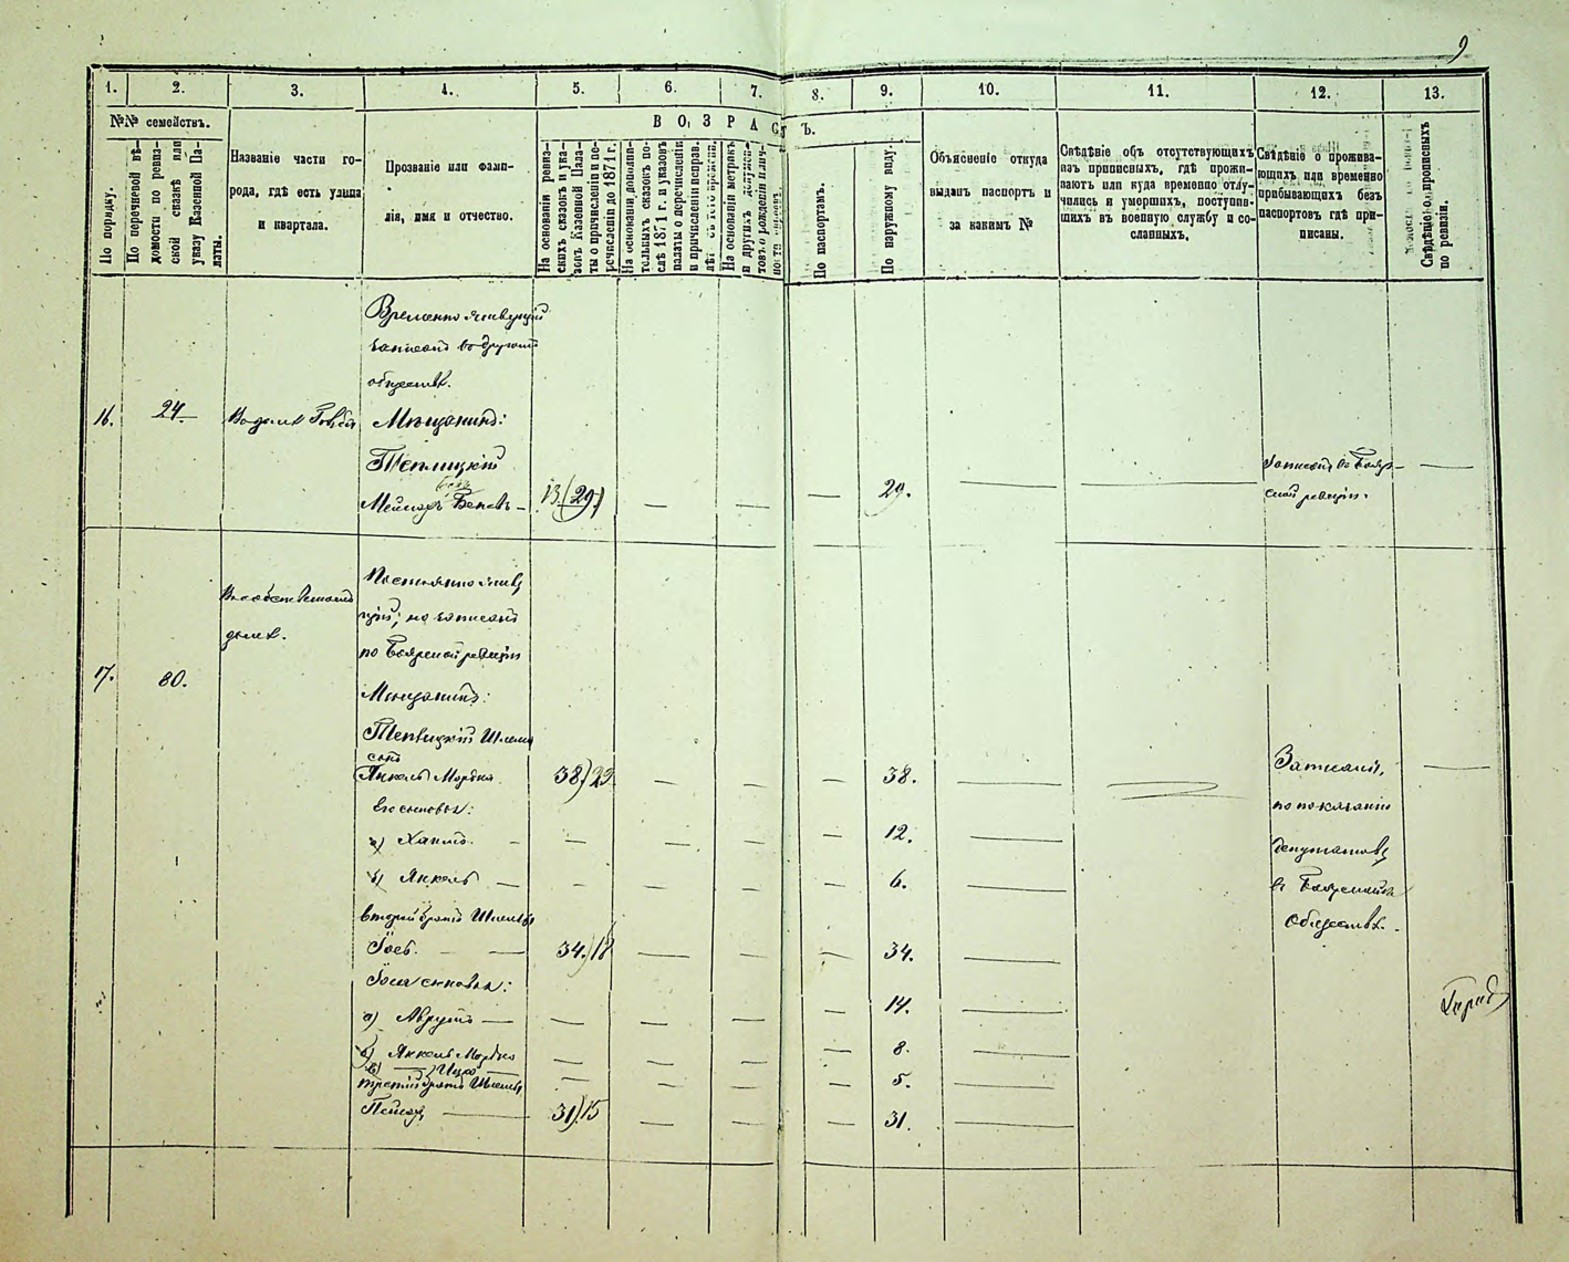 9
1.
2.
3.
4.
5.
6.
7.
8.
9.
10.
11.
12.
13.
№№ семействъ.
По порядку.
По перечневой вѣ-
домости по ревиз-
ской сказкѣ или
указу Казенной Па-
латы.
Названіе части го-
рода, гдѣ есть улица
и квартала.
Прозваніе или фами-
лія, имя и отчество.
ВОЗРАСТЪ.
На основаніи ревиз-
скихъ сказокъ и ука-
зовъ Казенной Пала-
ты о причисленіи или пе-
речисленіи до 1871 г.
На основаніи дополни-
тельныхъ сказокъ по-
слѣ 1871 г. и указовъ
палаты о перечисленіи
и причисленіи исправ.
лѣтъ съ того времени.
На основаніи метрикъ
и другихъ докумен-
товъ о рожденіи и лич-
По паспортамъ.
По наружному виду.
Объясненіе откуда
выданъ паспортъ и
за какимъ №
Свѣдѣніе объ отсутствующихъ
изъ приписныхъ, гдѣ прожи-
ваютъ или куда временно отлу-
чились и умершихъ, поступив-
шихъ въ военную службу и со-
сланныхъ.
Свѣдѣніе о прожива-
ющихъ или временно
прибывающихъ безъ
паспортовъ гдѣ при-
писаны.
Свѣдѣніе о прописныхъ
по ревизіи.
Временно живущій
записанъ въ другомъ
обществѣ.
16.
24.
Въ домѣ
Мѣщанинъ:
Теплицкій
Записанъ въ Бояр-
ской ревизіи.
13.(29)
—
—
—
29.
—
—
—
Въ собственномъ
домѣ.
Постоянно живу
щій, но записанъ
по Боярской ревизіи
17.
80.
Мѣщанинъ:
Теплицкій Шлема
сынъ
Янкель Мордко
38.)22
—
—
—
38.
—
—
Записанъ,
—
Его сыновья:
по показанію
а) Хаимъ.
—
—
—
—
—
12.
—
депутатовъ
б) Янкель
—
—
—
—
—
6.
—
въ Боярскомъ
второй братъ Шлемы
Обществѣ.
Іосъ.
34.)18
—
—
—
34.
—
Іося сыновья:
а) Аврумъ
—
—
—
—
14.
—
б) Янкель Мордко
—
—
—
—
8.
—
в) Ицко
—
—
—
—
5.
—
третій братъ Шлемы
Пейсах
31)15
—
—
—
31.
—